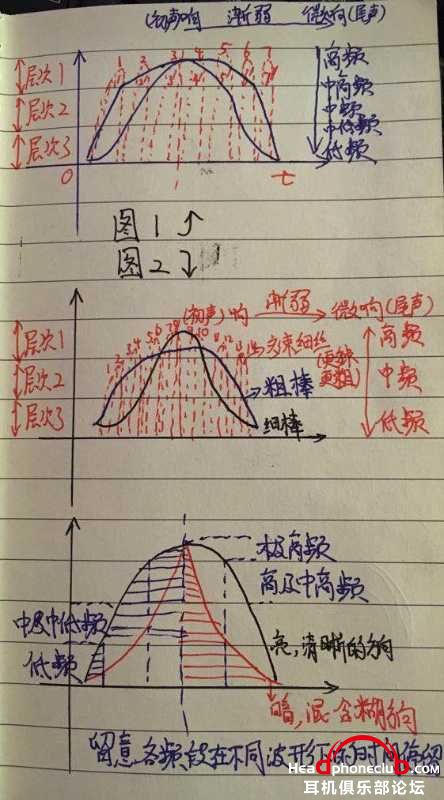 (初声)响 渐弱 微响(尾声)
层次1
层次2
层次3
1 2 3 4 5 6 7
高频
中高频
中频
中低频
低频
0
t
图1
图2
(初声)响 渐弱 微响(尾声)
层次1
层次2
层次3
多束细丝
粗棒
细棒
高频
中频
低频
极高频
高及中高频
中及中低频
低频
亮,清晰的方向
暗,混,含糊方向
留意各频段在不同波形下的时间
HeadphoneClub.com
耳机俱乐部论坛